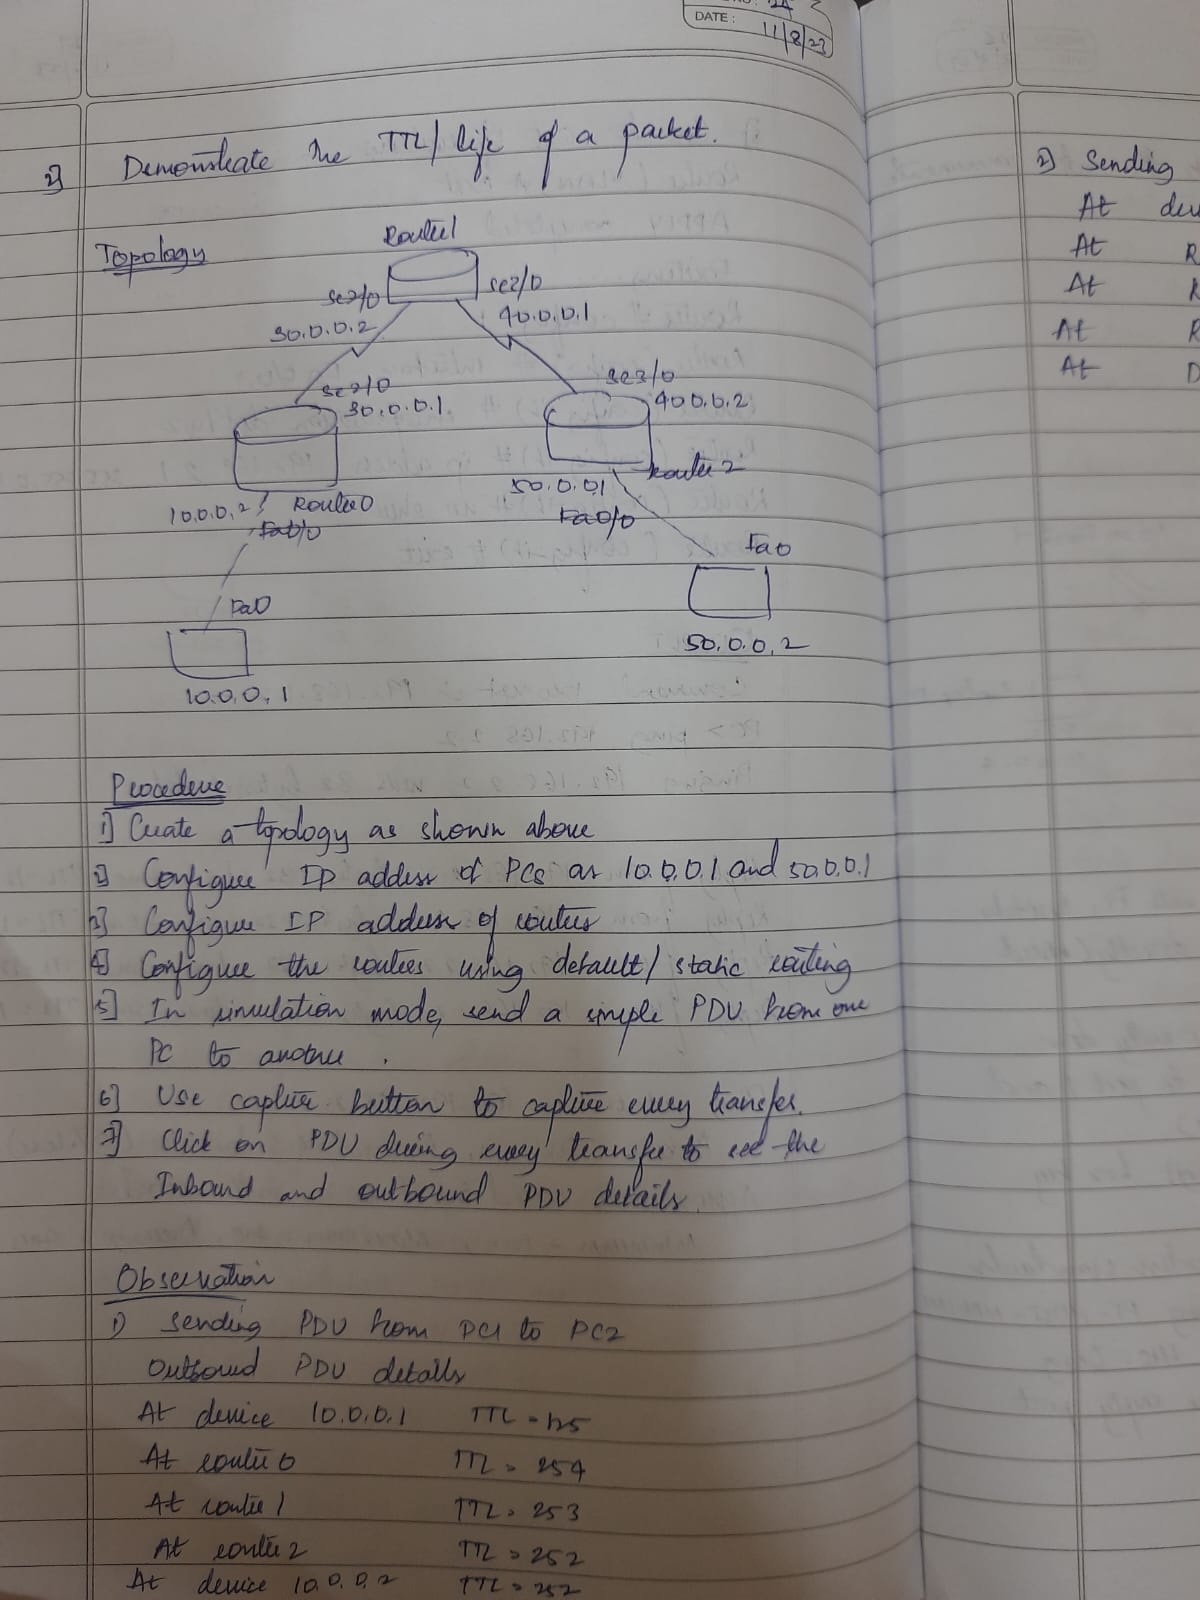 DATE: 11/8/23
2] Demonstrate the TTL/ life of a packet.
Topology
Router1
se2/0
se2/0
30.0.0.2
40.0.0.1
se2/0
30.0.0.1
se3/0
40.0.0.2
10.0.0.2
Router0
Fa0/0
50.0.0.1
Router 2
Fa0/0
Fa0
Fa0
50.0.0.2
10.0.0.1
Procedure
1] Create a topology as shown above
2] Configure IP address of PCs as 10.0.0.1 and 50.0.0.1
3] Configure IP address of routers
4] Configure the routers using default/ static routing
5] In simulation mode, send a simple PDU from one
PC to another.
6] Use capture button to capture every transfer.
7] Click on PDU during every transfer to see the
Inbound and outbound PDU details.
Observation
1) Sending PDU from PC1 to PC2
Outbound PDU details
At device 10.0.0.1 TTL =
At router 0 TTL = 254
At router 1 TTL = 253
At router 2 TTL = 252
At device 10.0.0.2 TTL = 252
2) Sending
At
At R
At
At R
At D